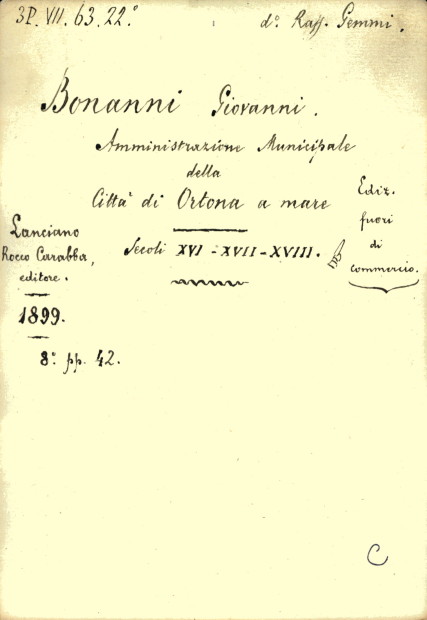 3P. VII. 63. 22°
d°. Raff. Gemmi.
Bonanni Giovanni.
Amministrazione Municipale
della
Città di Ortona a mare
Secoli XVI - XVII - XVIII.
Ediz.
fuori
di
commercio.
Lanciano
Rocco Carabba,
editore.
1899.
8° pp. 42.
C